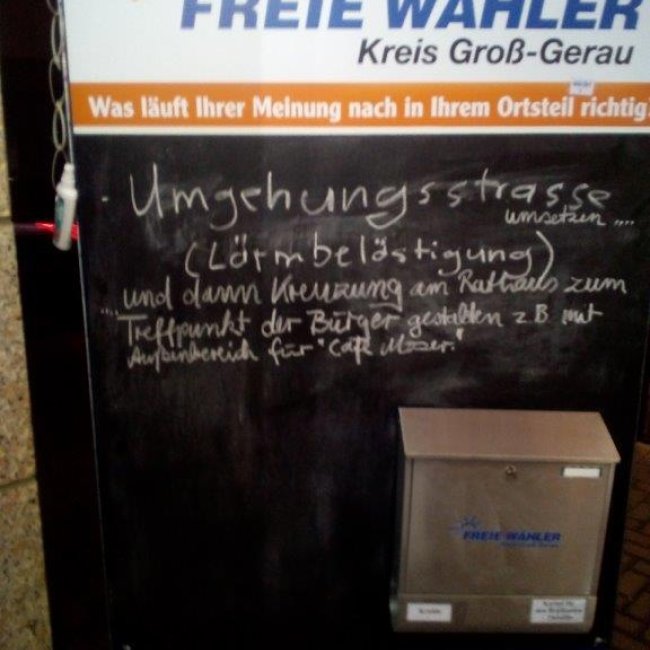 FREIE WÄHLER
Kreis Groß-Gerau
Was läuft Ihrer Meinung nach in Ihrem Ortsteil richtig
- Umgehungsstrasse
umsetzen ....
(Lärmbelästigung)
und dann Kreuzung am Rathaus zum
.... Treffpunkt der Bürger gestalten z B mit
Außenbereich für "Café Moser."
FREIE WÄHLER